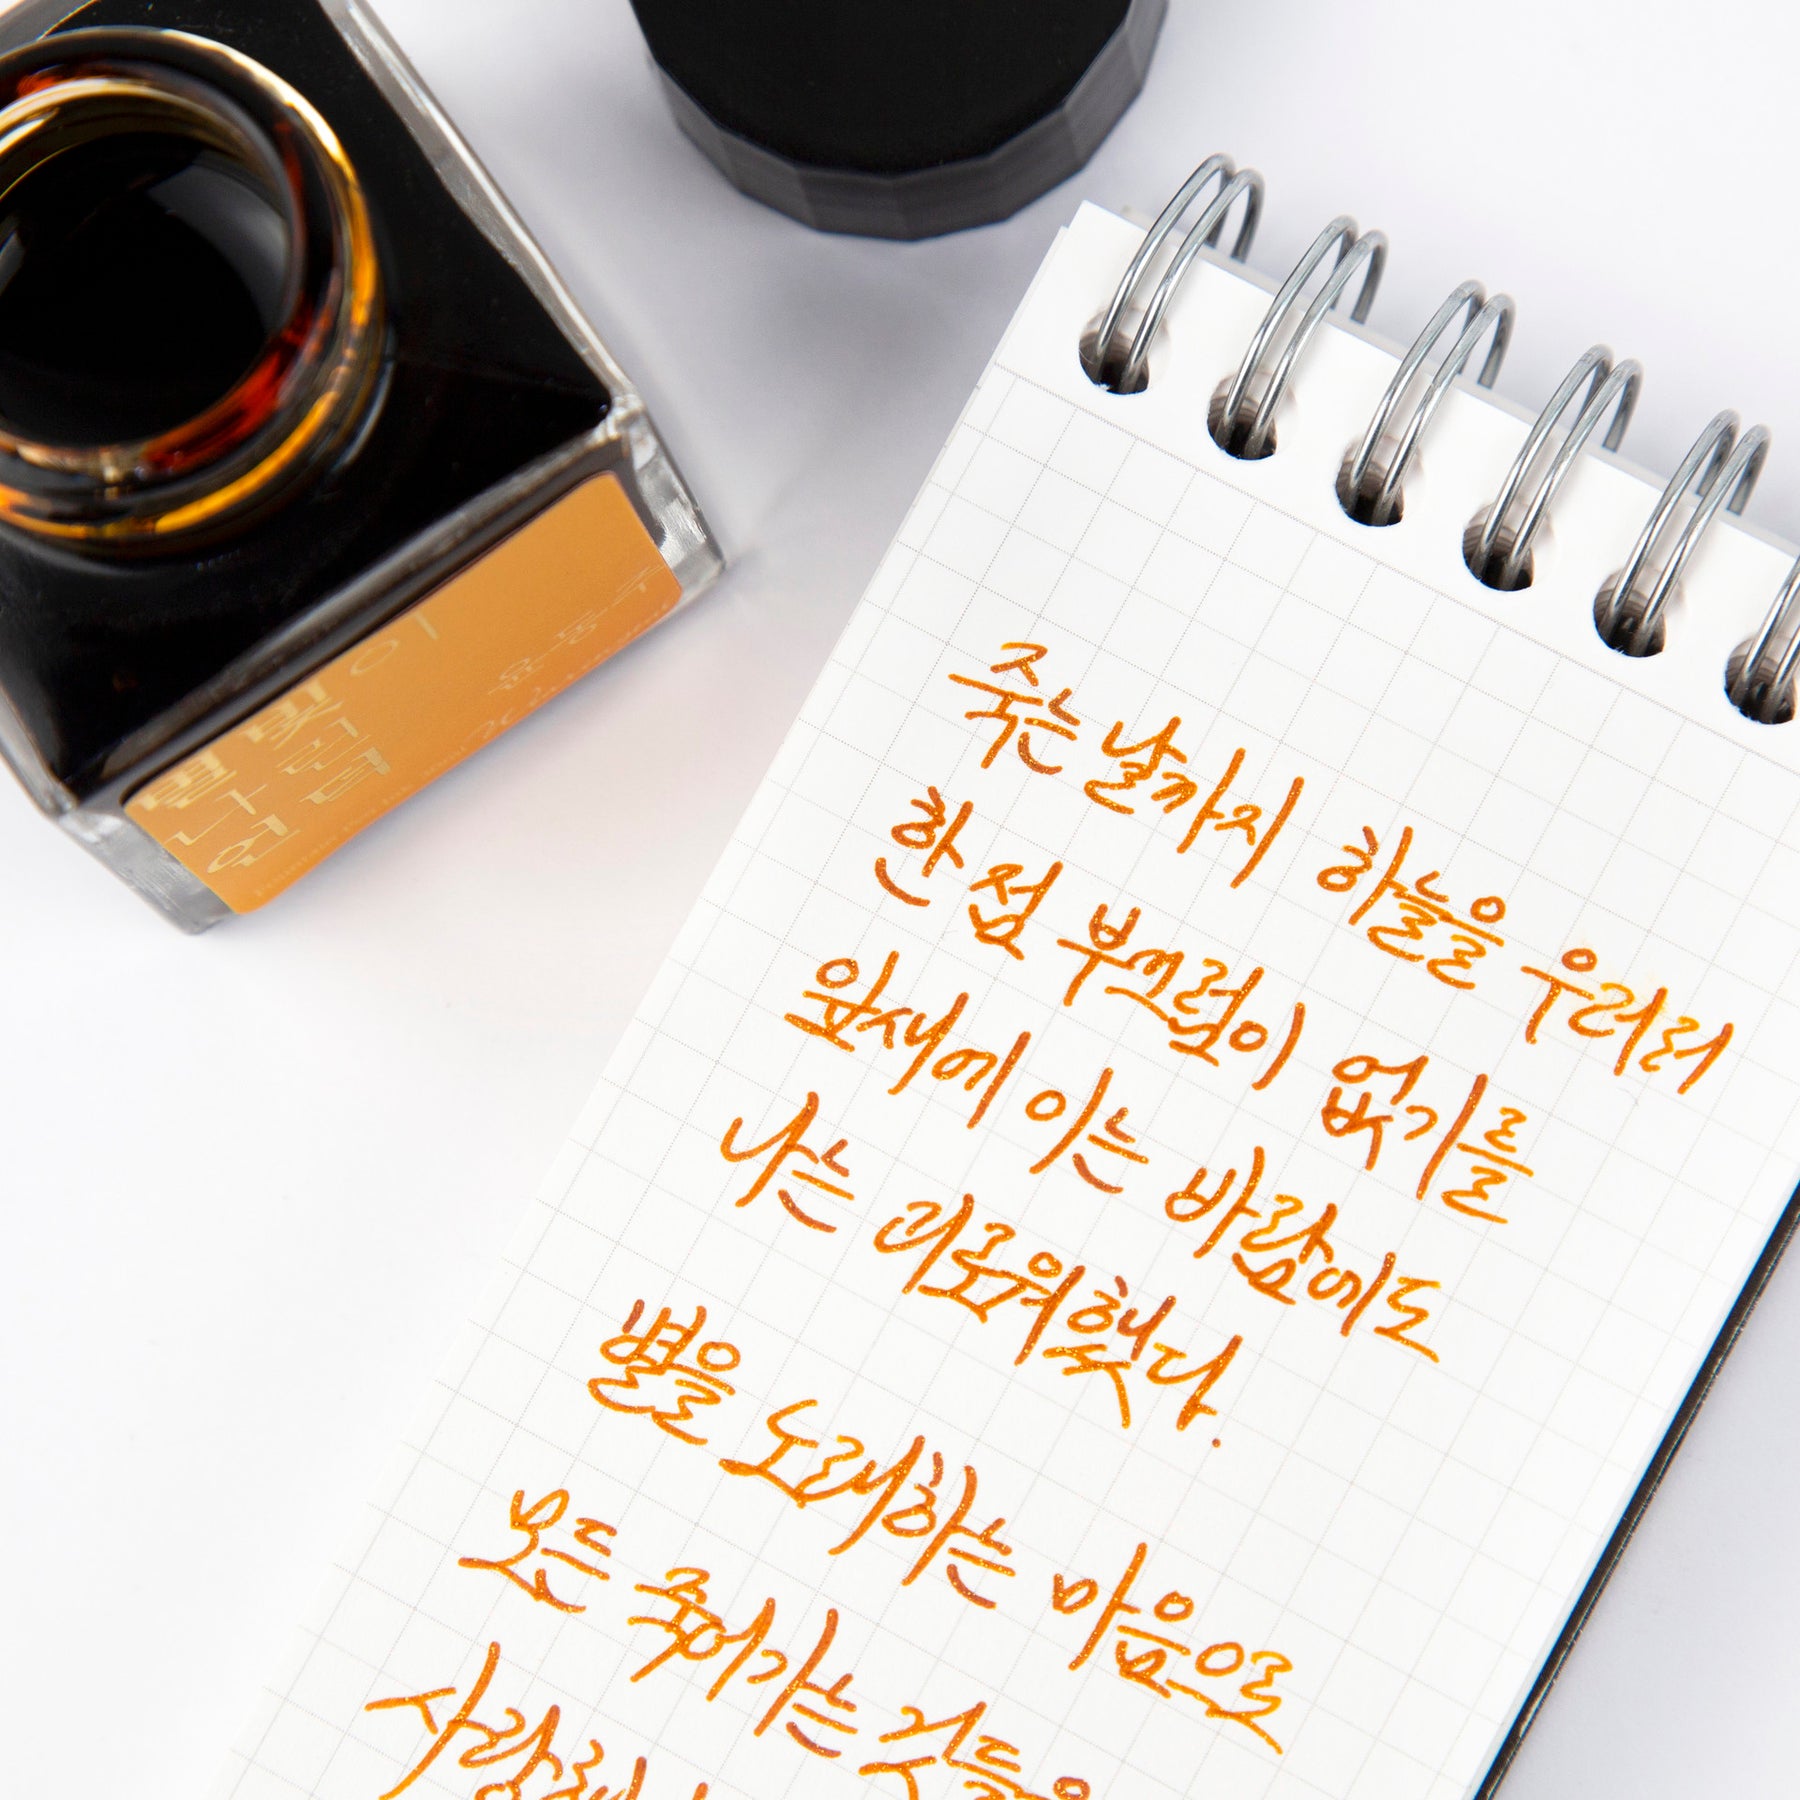 윤동주
죽는 날까지 하늘을 우러러
한 점 부끄럼이 없기를
잎새에 이는 바람에도
나는 괴로워했다.
별을 노래하는 마음으로
모든 죽어가는 것들을